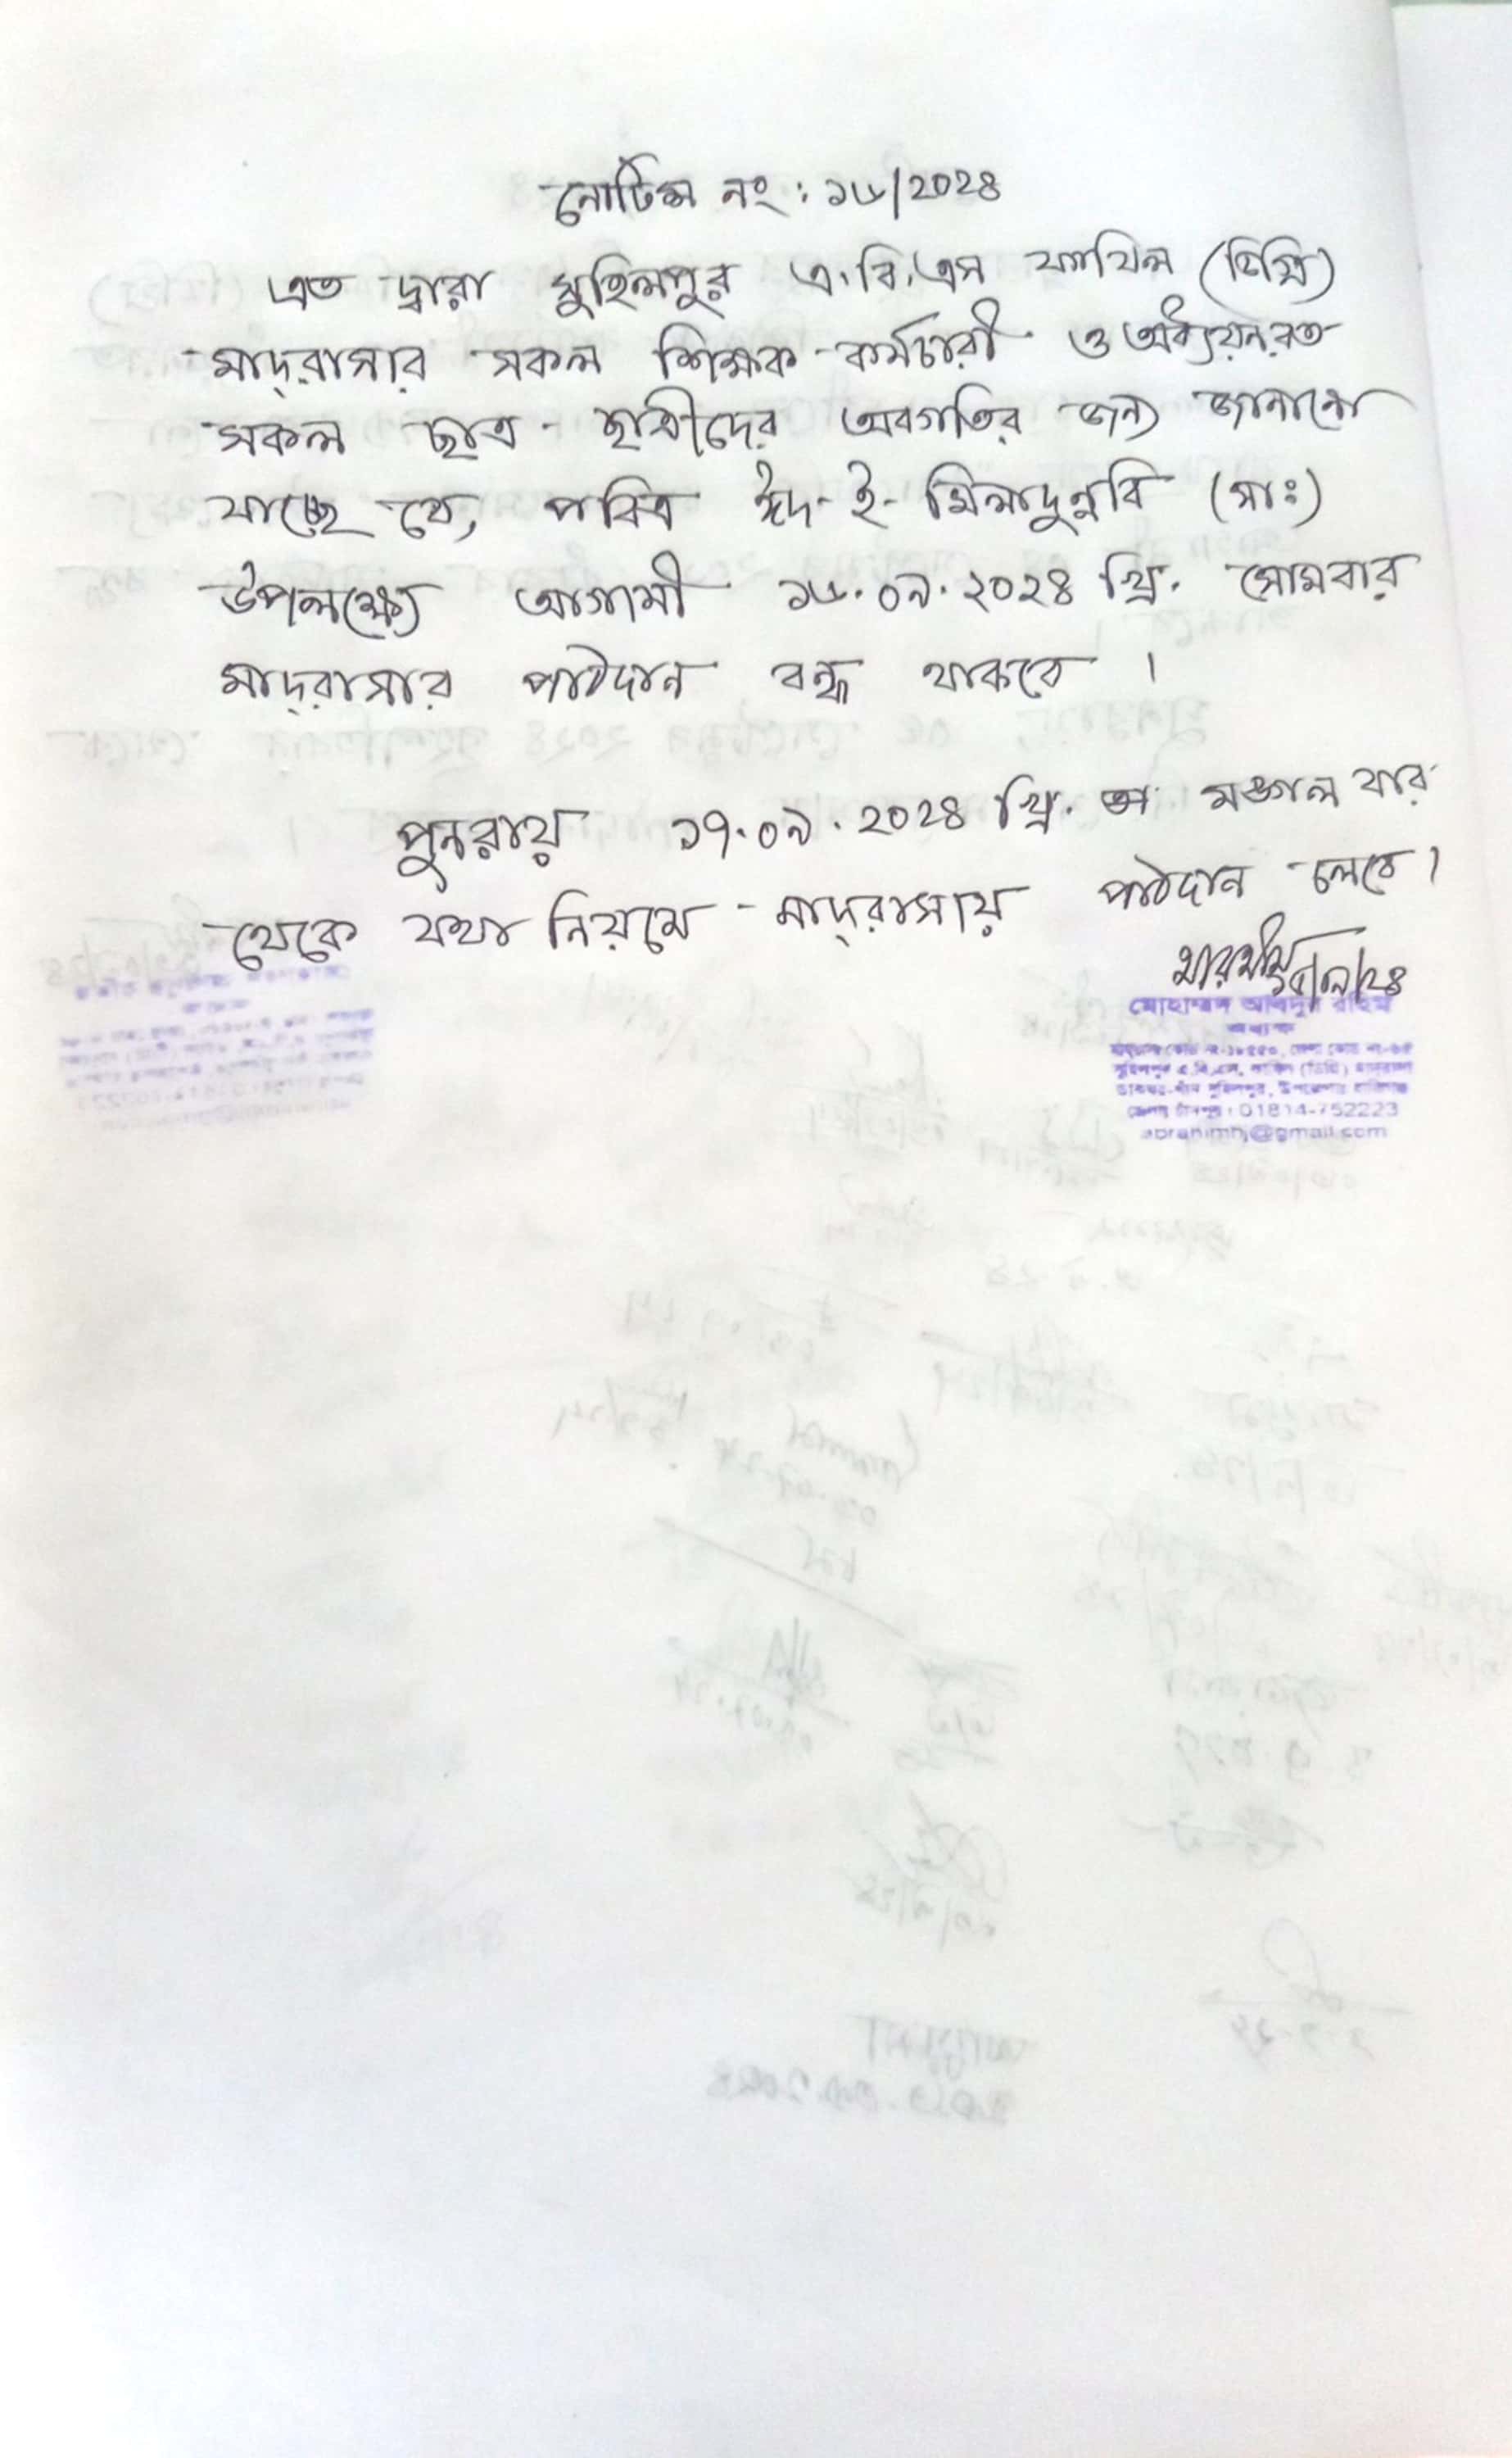 নোটিস নং : ১৬/২০২৪
এত দ্বারা মুহিলপুর এ.বি.এস ফাযিল (ডিগ্রি)
মাদ্‌রাসার সকল শিক্ষক-কর্মচারী ও অধ্যয়নরত
সকল ছাত্র-ছাত্রীদের অবগতির জন্য জানানো
যাচ্ছে যে, পবিত্র ঈদ-ই-মিলাদুন্নবি (সাঃ)
উপলক্ষ্যে আগামী ১৬.০৯.২০২৪ খ্রি. সোমবার
মাদ্‌রাসার পাঠদান বন্ধ থাকবে ।
পুনরায় ১৭.০৯.২০২৪ খ্রি. মঙ্গলবার
থেকে যথা নিয়মে মাদ্‌রাসায় পাঠদান চলবে।
১৫/০৯/২৪
মোহাম্মদ আবদুর রহিম
অধ্যক্ষ
মুহিলপুর এ.বি.এস. ফাযিল (ডিগ্রি) মাদরাসা
01814-752223
@gmail.com